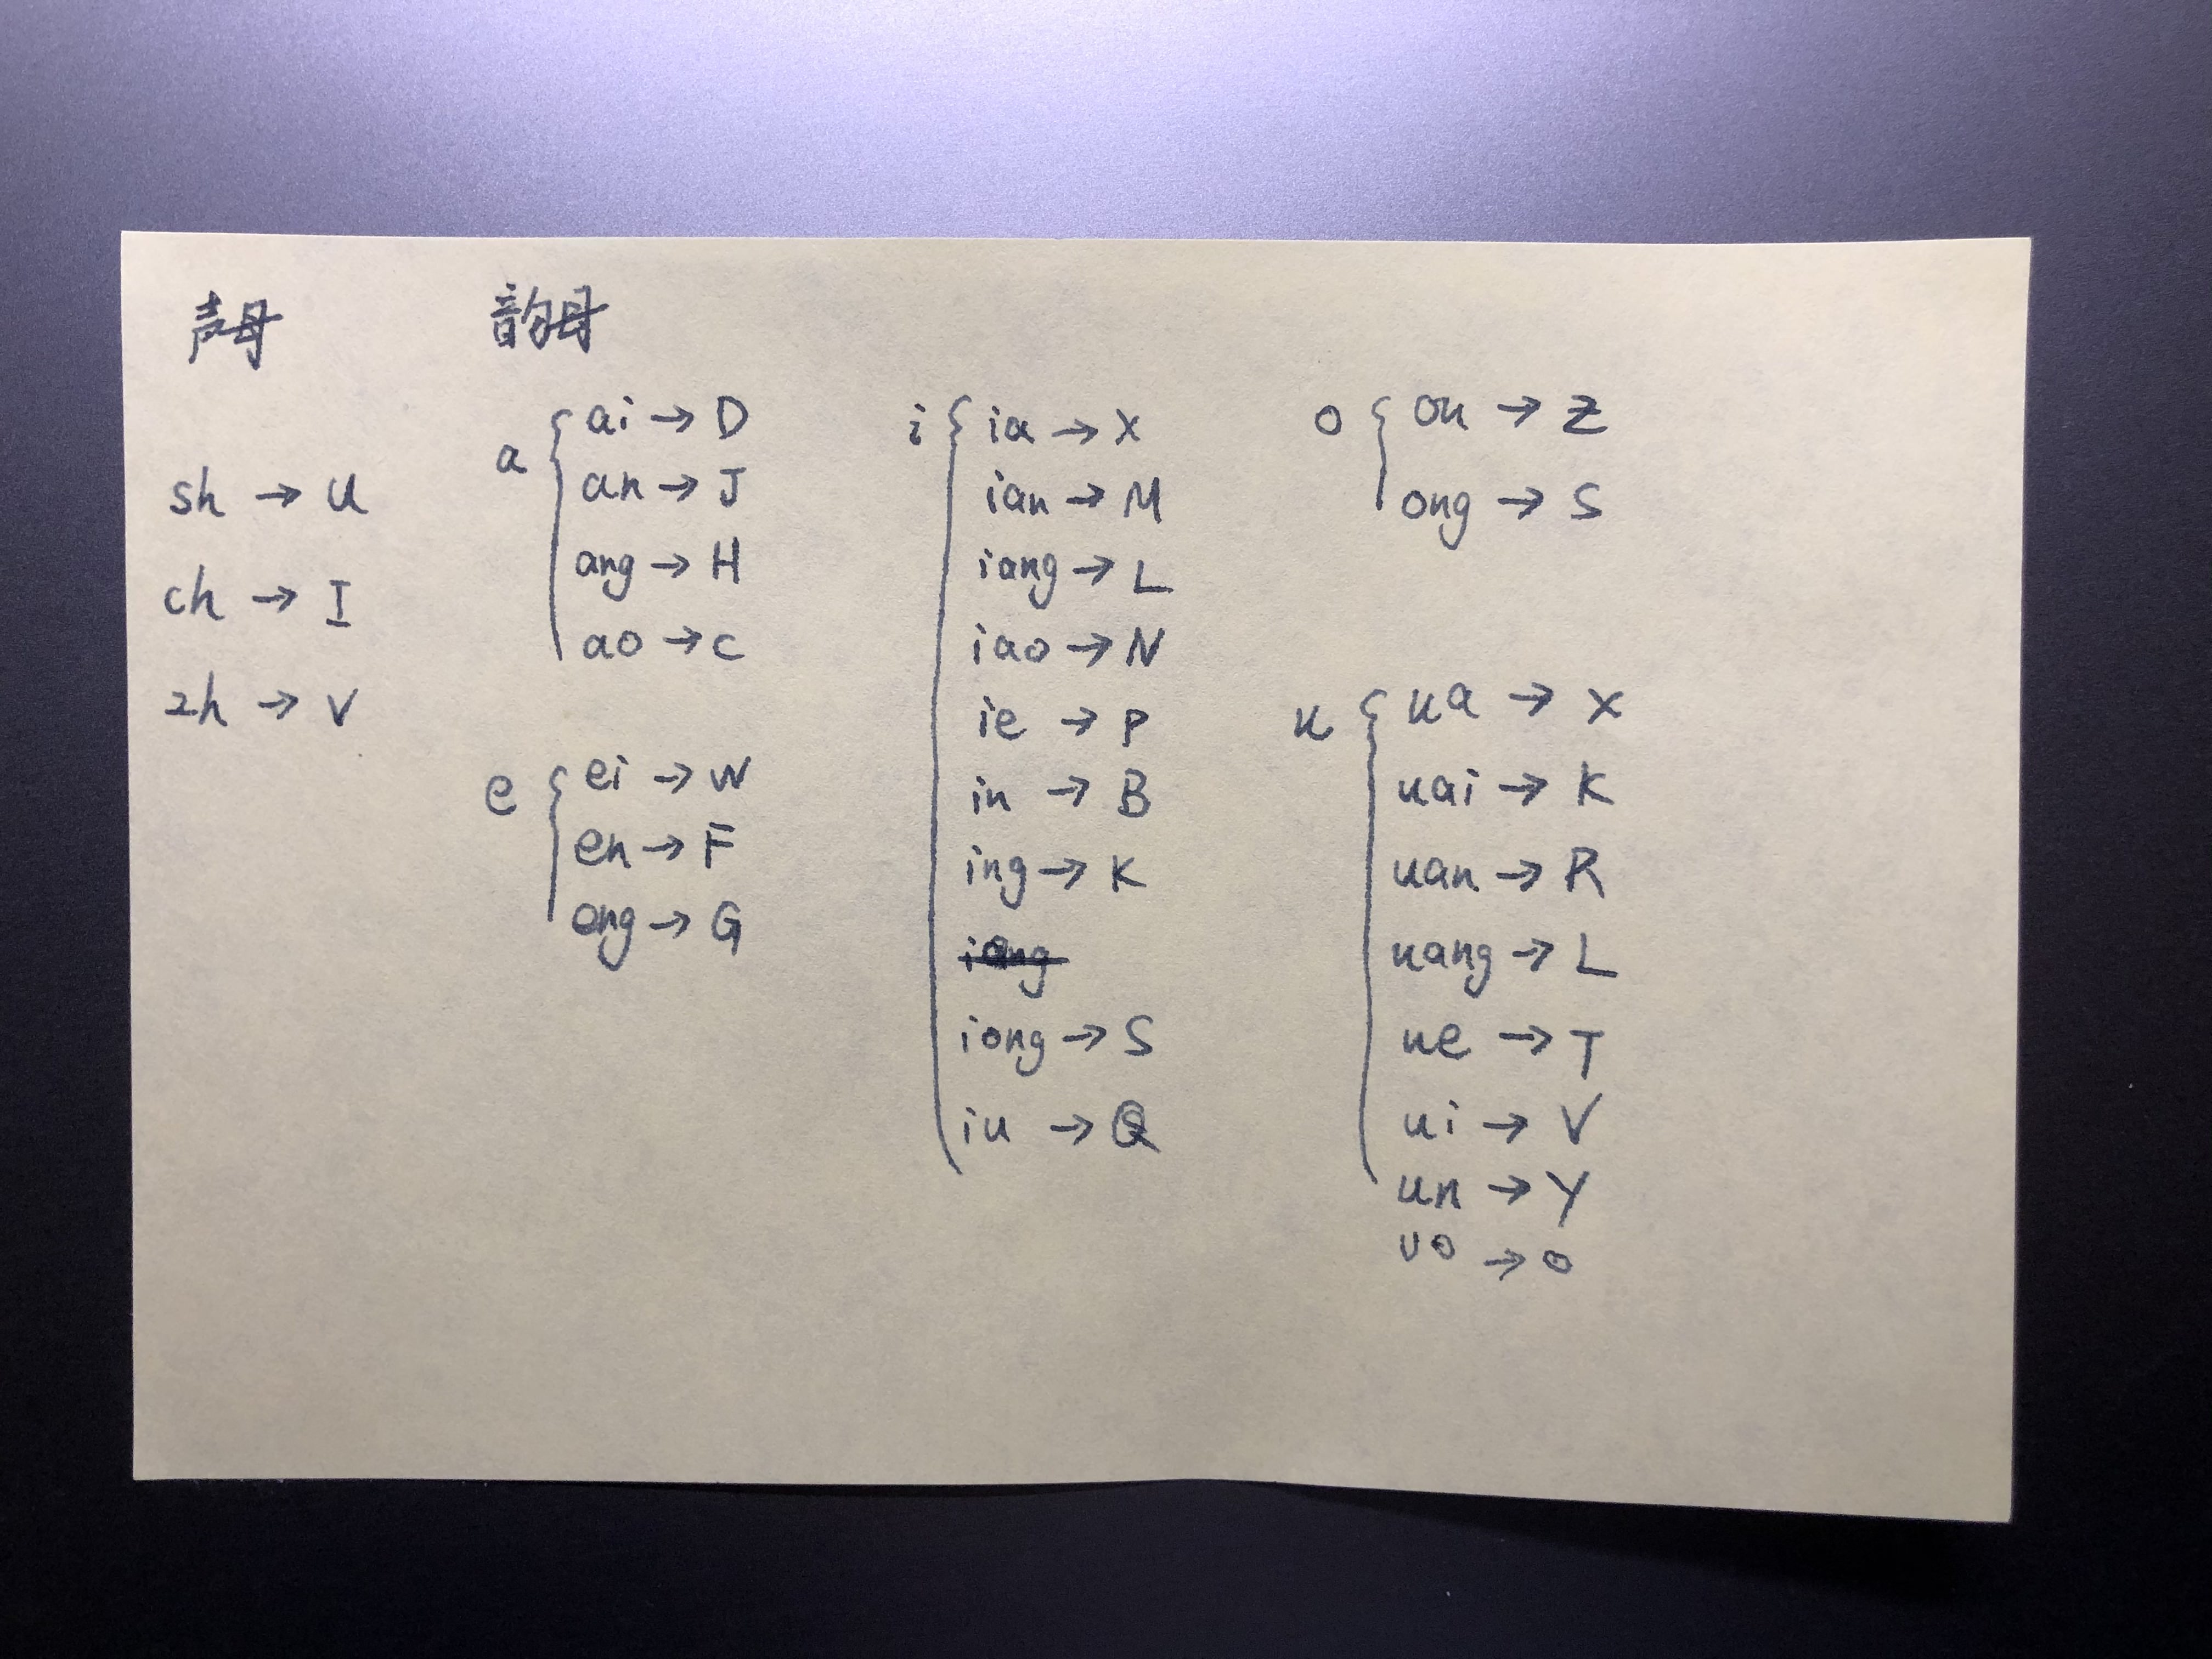 声母
sh → U
ch → I
zh → V
韵母
a
ai → D
an → J
ang → H
ao → C
e
ei → W
en → F
eng → G
i
ia → X
ian → M
iang → L
iao → N
ie → P
in → B
ing → K
iong → S
iu → Q
o
ou → Z
ong → S
u
ua → X
uai → K
uan → R
uang → L
ue → T
ui → V
un → Y
uo → o